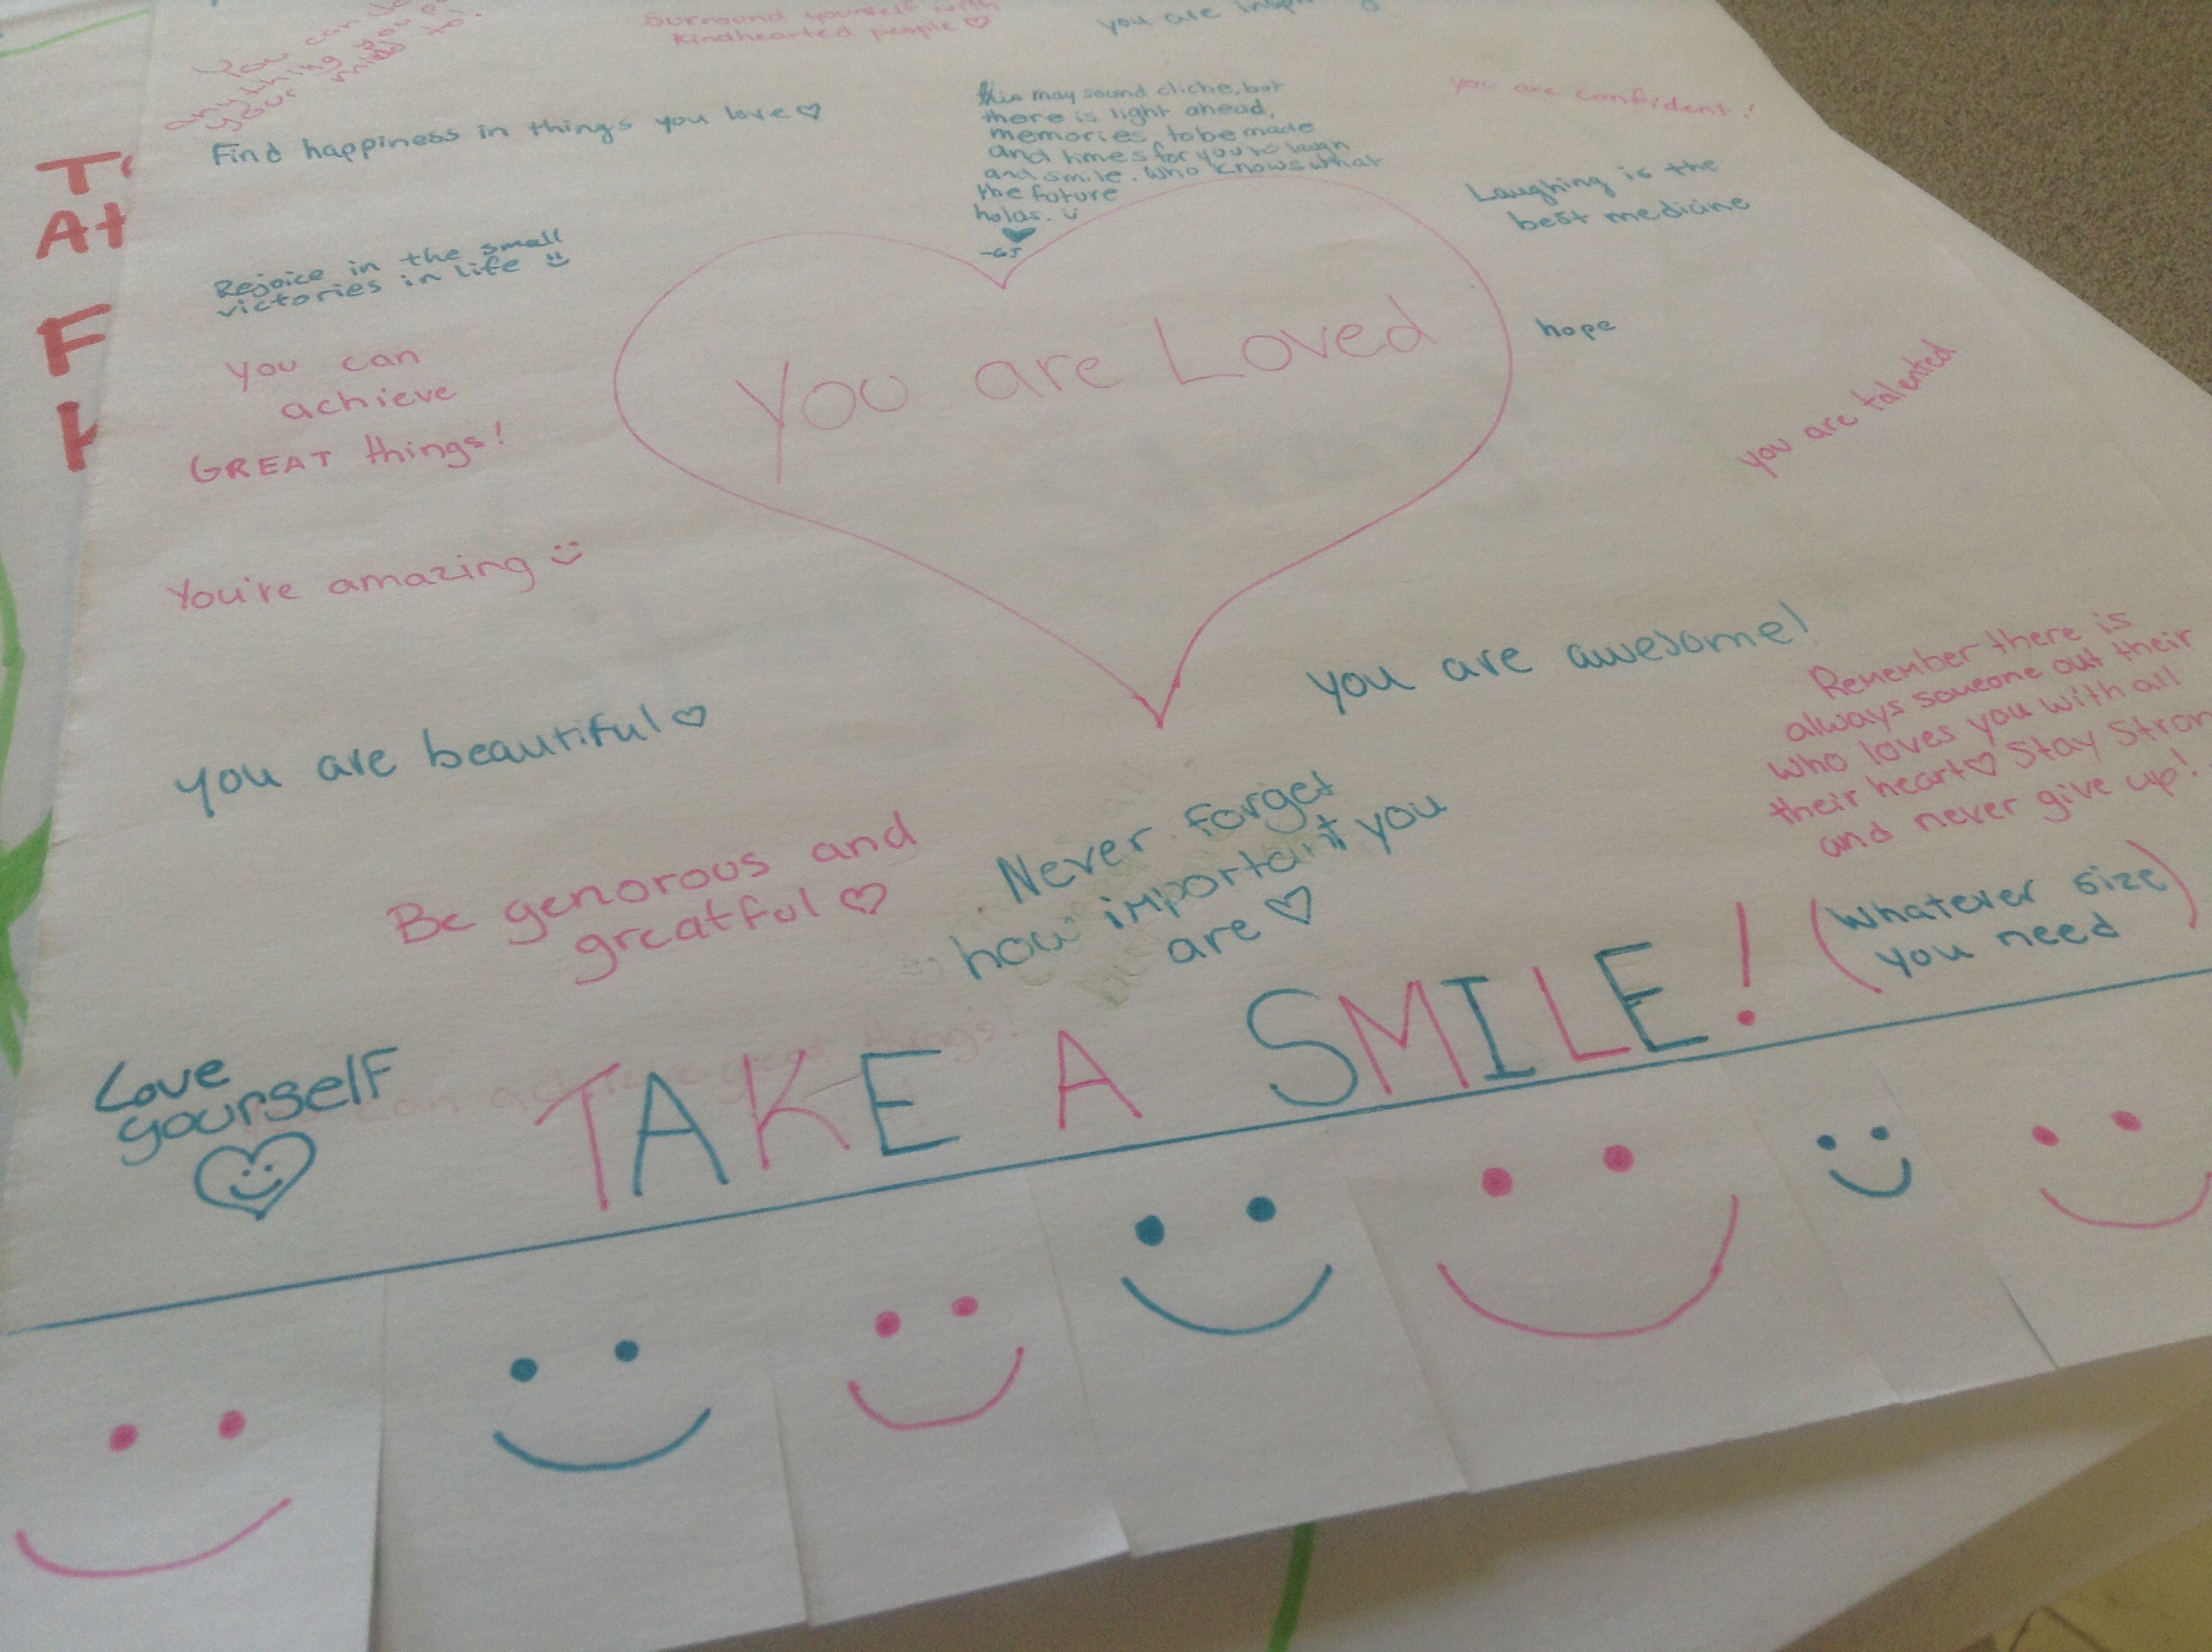 You can do
anything you
your mind to.
Surround yourself with
Kindhearted people
you are
Find happiness in things you love
this may sound cliche, but
there is light ahead,
memories to be made
and times for you to laugh
and smile. Who knows what
the future
holds.
-GJ
you are confident!
Laughing is the
best medicine
Rejoice in the small
victories in life
hope
You are Loved
you can
achieve
GREAT things!
you are talented
You're amazing
you are awesome!
Remember there is
always someone out their
who loves you with all
their heart Stay Stron
and never give up!
you are beautiful
Be genorous and
greatful
Never forget
how important you
are
(Whatever size
you need)
Love
yourself
TAKE A SMILE!
At
F